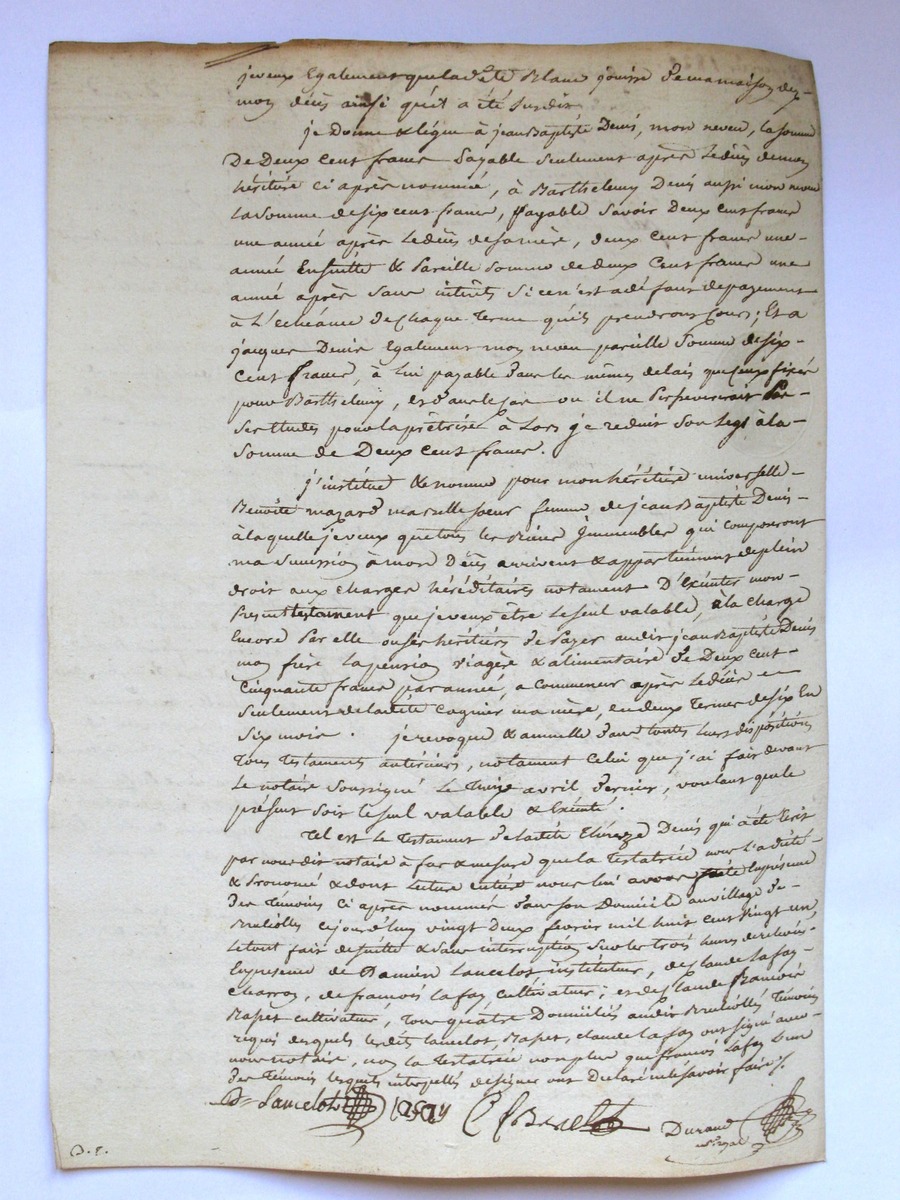 je veux Egalement que ladite Blanc jouisse de ma maison dez-
mon décès ainsi qu'il a été susdit
je Donne & légue à jean Baptiste Denis, mon neveu, la somme
De Deux cent francs payable seulement après le décès de mon
héritière ci après nommée, à Barthelemy Denis aussi mon neveu
la somme de six cent francs, payable savoir Deux cent francs
une année après le décès de sa mère, deux cent francs une-
année Ensuitte & pareille somme de deux Cent francs une
année après sans intérêts si ce n'est à défaut de payement
à L'echéance de Chaque terme qu'ils prendront Cours; Et a
jacques Denis Egalement mon neveu pareille Somme de six-
Cent francs, à lui payable dans les mêmes delais que Ceux fixés
pour Barthelemy, et dans le cas ou il ne persevererait pas
ses Etudes pour la prêtrise à Lors je reduit son legs à la-
Somme de Deux cent francs.
j'institue & nomme pour mon héritière universelle-
Benoîte mazard ma belle soeur femme de jean Baptiste Denis-
à laquelle je veux que tous les Biens Immeubles qui composeront
ma succession à mon Décès arrivent & appartiennent de plein
droit aux charges héréditaires notament D'Exécuter mon-
Présent testament que je veux être le seul valable, à la charge
Encore par elle ou ses héritiers de payer audit jean Baptiste Denis
mon frère la pension viagère & alimentaire de Deux cent-
Cinquante francs par année, a commencer après le décès-
seulement de ladite Cagnier ma mère, en deux Termes de six En
six mois. je revoque & annulle dans toutes leurs dispositions
Tous testaments antérieurs, notament Celui que j'ai fait devant
Le notaire soussigné Le treize avril dernier, voulant que le
présent soit le seul valable & Exécuté.
Tel est le Testament de ladite Denis qui a été Ecrit
par nous dit notaire à fur & mesure que la Testatrice nous l'a dicté
& prononcé & dont lecture entière nous lui avons faite En présence
des témoins ci après nommés dans son Domicile au village de-
cejourd'huy vingt deux fevrier mil huit cent vingt un,
le tout fait de suitte & sans interruption sur les trois heures de relevée
En présence de Damien Lancelot instituteur, de Claude Lafay
charron, de françois Lafay cultivateur; et de Claude
Rapet cultivateur, tous quatre Domiciliés audit témoins
requis desquels lesdits Lancelot, Rapet, Claude Lafay ont signé avec
nous notaire, non la testatrice non plus que françois Lafay L'un
des témoins lesquels interpellés de signer ont Déclaré ne le savoir faire /.
Dn Lancelot lafay Durand
D. E.